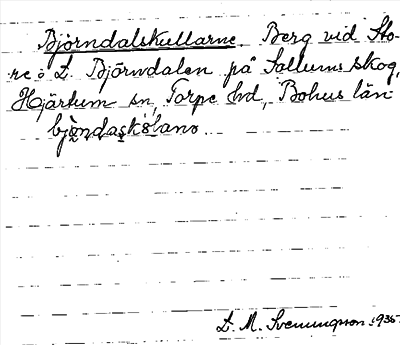 Björndalskullarne. Berg vid Sto-
re o L. Björndalen på Sollums skog,
Hjärtum sn, Torpe hd, Bohus län
L. M. Svenungsson 1935.